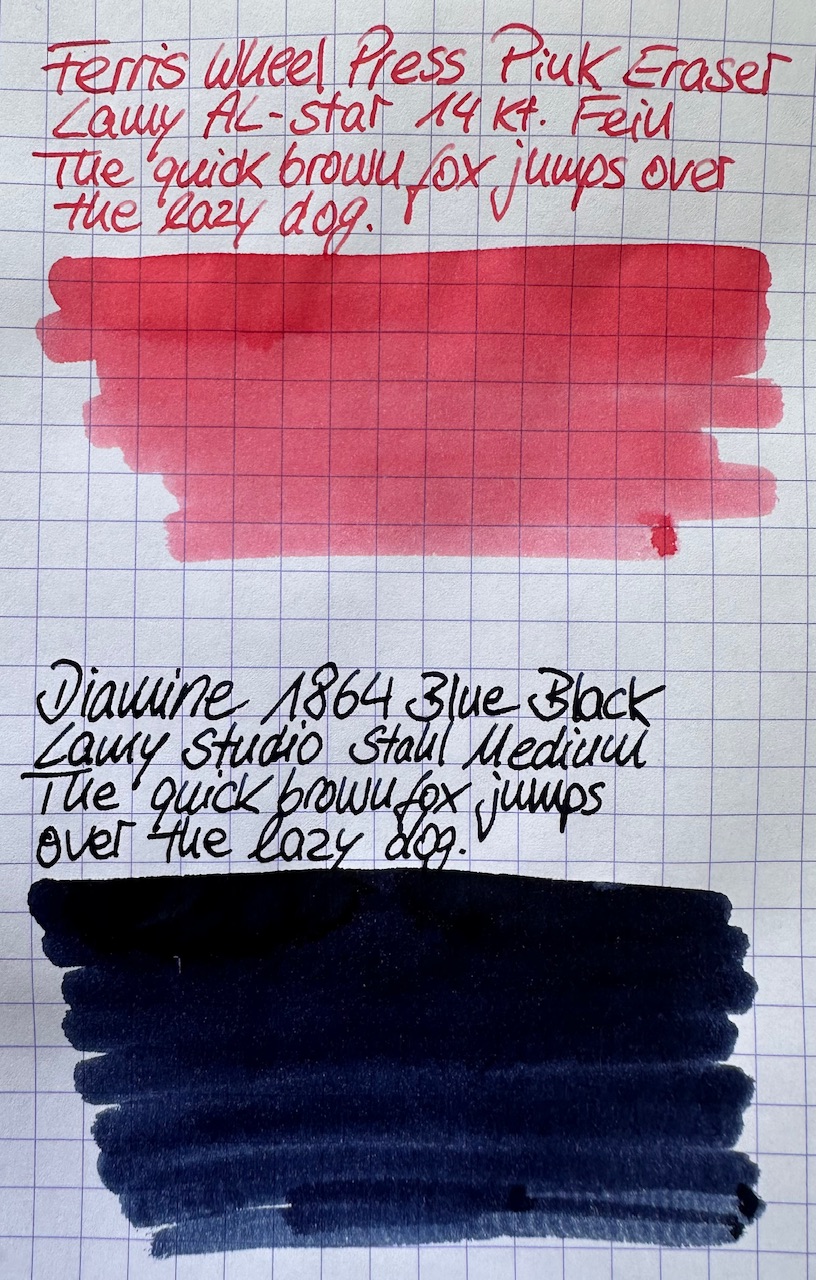 Ferris Wheel Press Pink Eraser
Lamy AL-Star 14 kt. Fein
The quick brown fox jumps over
the lazy dog.
Diamine 1864 Blue Black
Lamy Studio Stahl Medium
The quick brown fox jumps
over the lazy dog.